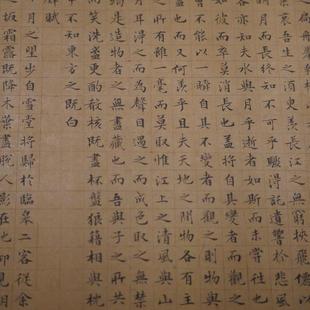 哀吾生之須臾羨長江之無窮挾飛僊以
明月而長終知不可乎驟得託遺響於悲
客亦知夫水與月乎逝者如斯而未嘗往也
如彼而卒莫消長也盖將自其變者而觀之
曾不能以一瞬自其不變者而觀之則物與
也而又何羨乎且夫天地之間物各有主
之所有雖一毫而莫取惟江上之清風與山
月耳得之而為聲目遇之而成色取之無禁
竭是造物者之無盡藏也而吾與子之所共
而笑洗盞更酌肴核既盡杯盤狼籍相與枕
中不知東方之既白
壁賦
月之望步自雪堂將歸於臨皋二客從余
坂霜露既降木葉盡脫人影在地仰見明月